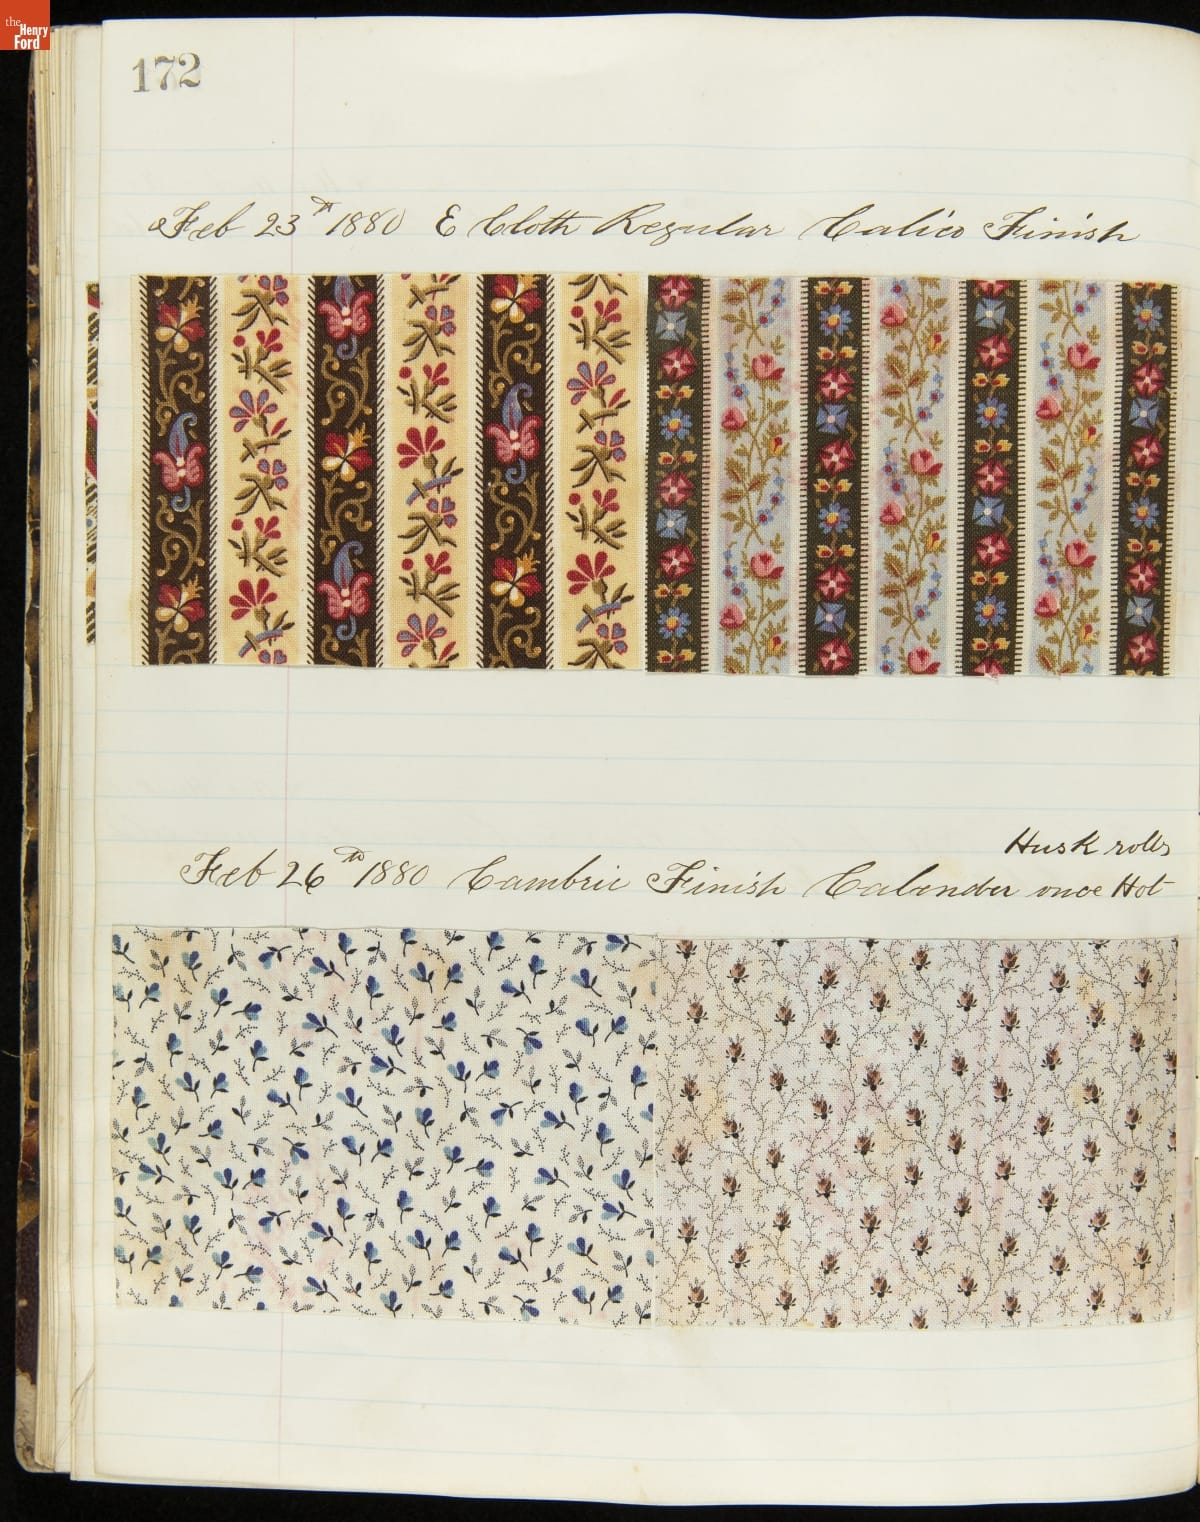 the
Henry
Ford
172
Feb 23th 1880 E Cloth Regular Calico Finish
Husk rolls
Feb 26th 1880 Cambric Finish Calender once Hot